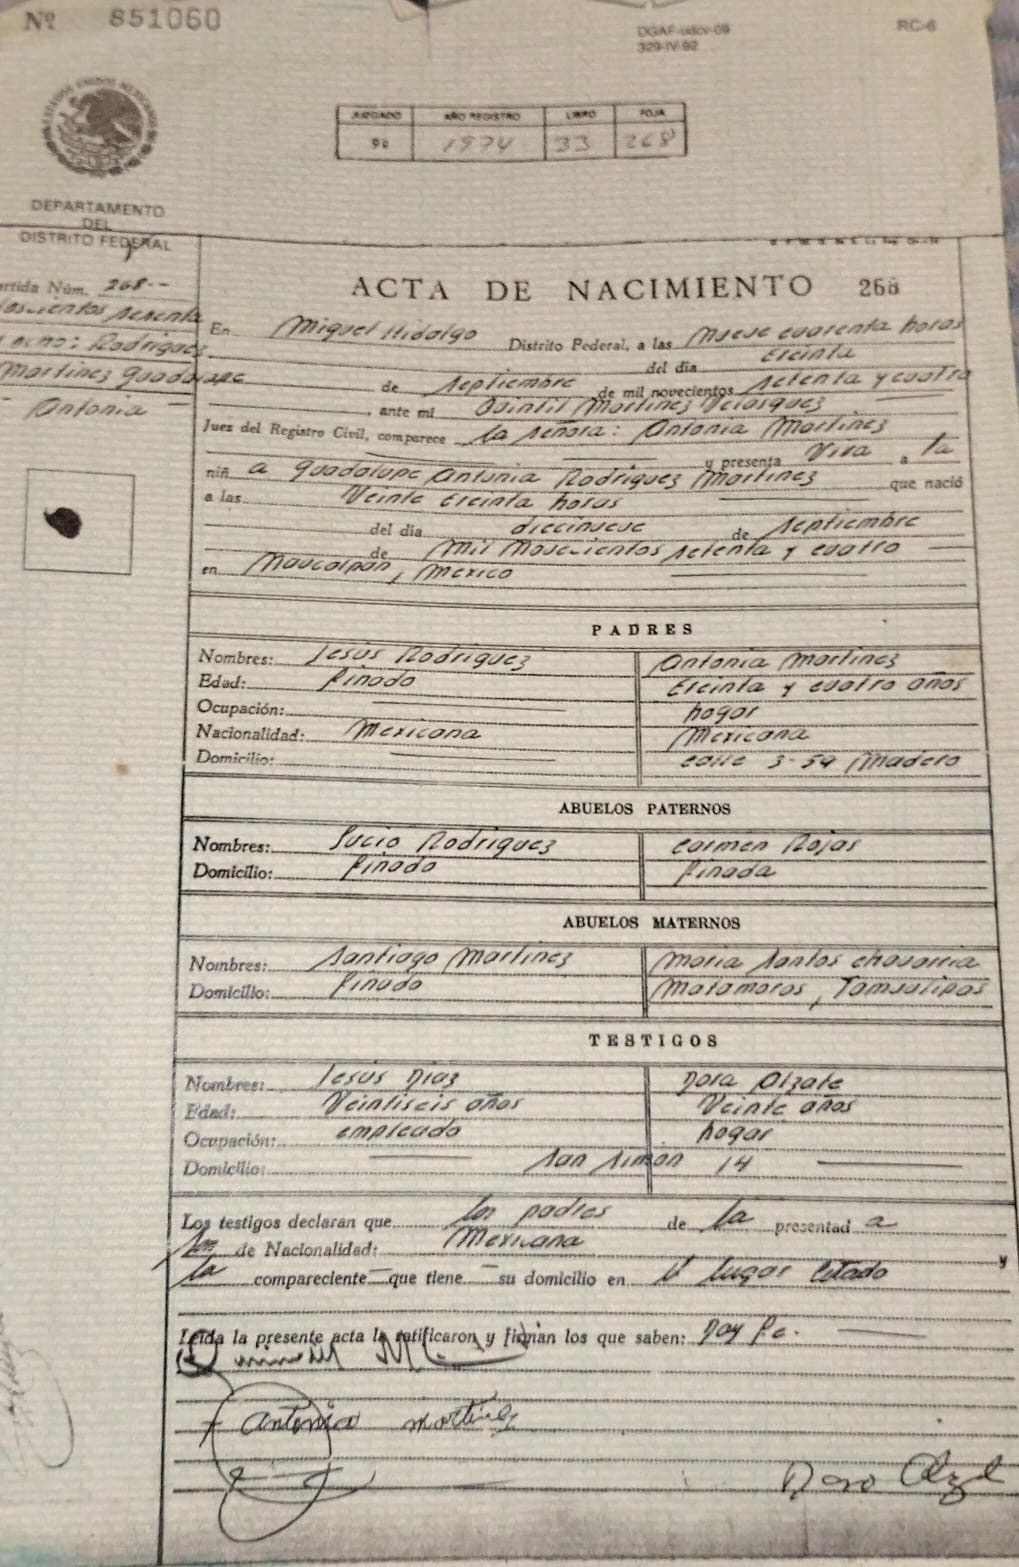 Nº 851060
DGAF-udcv-09
329-IV-92
RC-6
JUZGADO AÑO REGISTRO LIBRO FOJA
1974 33 268
DEPARTAMENTO
DEL
DISTRITO FEDERAL
ACTA DE NACIMIENTO 268
rtida Núm. 268--
doscientos sesenta
y ocho: Rodriguez
Martinez Guadalupe
- Antonia -
En Miguel Hidalgo Distrito Federal, a las nueve cuarenta horas
del día treinta
de septiembre de mil novecientos setenta y cuatro
, ante mi Quintil Martinez Velasquez
Juez del Registro Civil, comparece la señora: Antonia Martinez
y presenta viva a la
niñ a Guadalupe Antonia Rodriguez Martinez que nació
a las Veinte treinta horas
del día diecinueve de septiembre
de mil novecientos setenta y cuatro
en Naucalpan, Mexico
PADRES
Nombres: Jesús Rodriguez Antonia Martinez
Edad: finado treinta y cuatro años
Ocupación: hogar
Nacionalidad: Mexicana Mexicana
Domicilio: calle 3-59 Madero
ABUELOS PATERNOS
Nombres: Lucio Rodriguez Carmen Rojas
Domicilio: finado finada
ABUELOS MATERNOS
Nombres: Santiago Martinez Maria Santos Chavarria
Domicilio: finado Matamoros, Tamaulipas
TESTIGOS
Nombres: Jesús Diaz Dora Alzate
Edad: Veintiseis años Veinte años
Ocupación: empleado hogar
Domicilio: San Simon 14
Los testigos declaran que los padres de la presentad a
son de Nacionalidad: Mexicana y
la compareciente que tiene su domicilio en el lugar citado
Leída la presente acta la ratificaron y firman los que saben: Doy fe.
Antonia Martinez